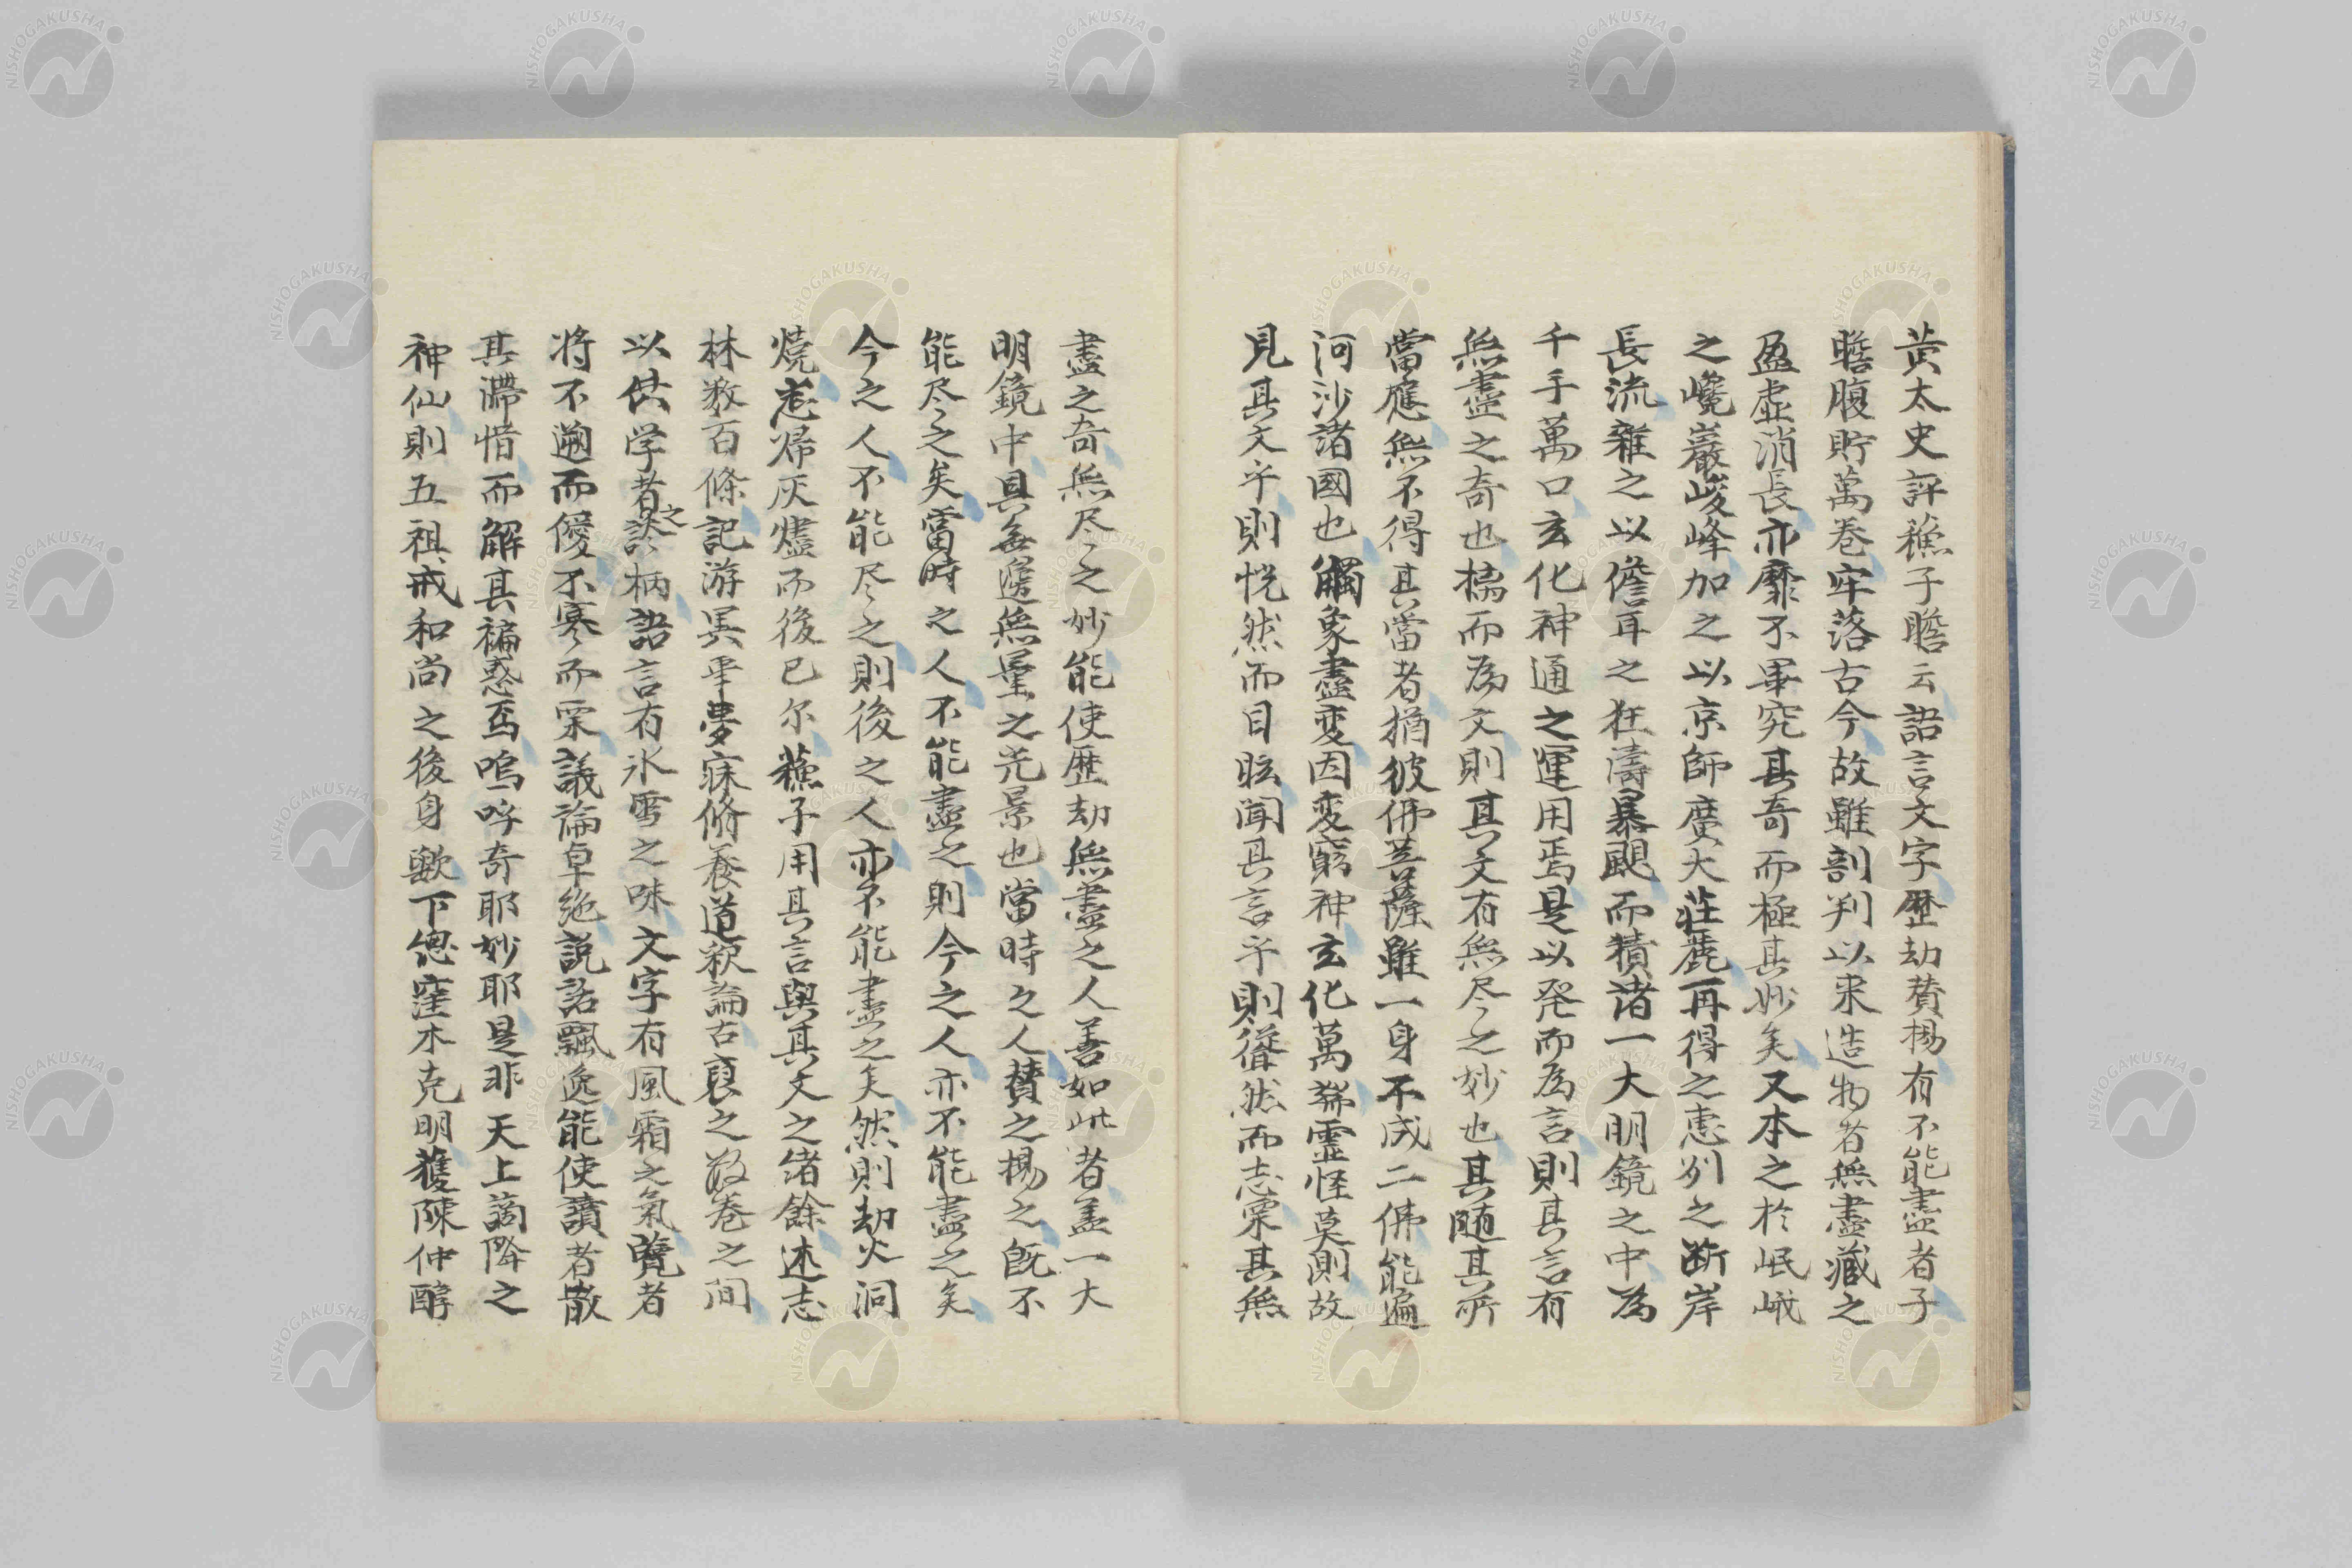 黄太史評蘓子瞻云語言文字歷劫賛楊有不能盡者子
瞻腹貯萬巻牢落古今故雖剖判以来造物者無盡藏之
盈虚消長亦靡不畢究其奇而極其妙矣又本之於岷峨
之巉巌峻峰加之以京師廣大荘麗再得之恵州之断岸
長流雜之以儋耳之狂濤暴颶而積諸一大明鏡之中為
千手萬口玄化神通之運用焉是以発而為言則其言有
無盡之奇也摛而為文則其文有無尽之妙也其随其所
當應無不得其當者猶彼佛菩薩雖一身不成二佛能遍
河沙諸國也觸象盡変因変窮神玄化萬端霊怪莫測故
見其文乎則恍然而目眩闻其言乎則聳然而志栗其無
盡之奇無尽之妙能使歴劫無盡之人善如此者盖一大
明鏡中具無邊無量之光景也當時之人賛之楊之既不
能尽之矣當時之人不能盡之則今之人亦不能盡之矣
今之人不能尽之則後之人亦不能盡之矣然則劫火洞
燒悲帰灰燼而後已尓蘓子用其言與其文之绪餘述志
林数百條記游異事夢寐脩養道釈論古裒之数巻之間
以供学者之談柄語言有氷雪之味文字有風霜之氣覽者
将不遡而僾不寒而栗議論卓絶説話飄逸能使讀者散
其滯悋而解其褊惑焉嗚呼奇耶妙耶是非天上謫降之
神仙則五祖戒和尚之後身歟下総窪木克明獲陳仲醇